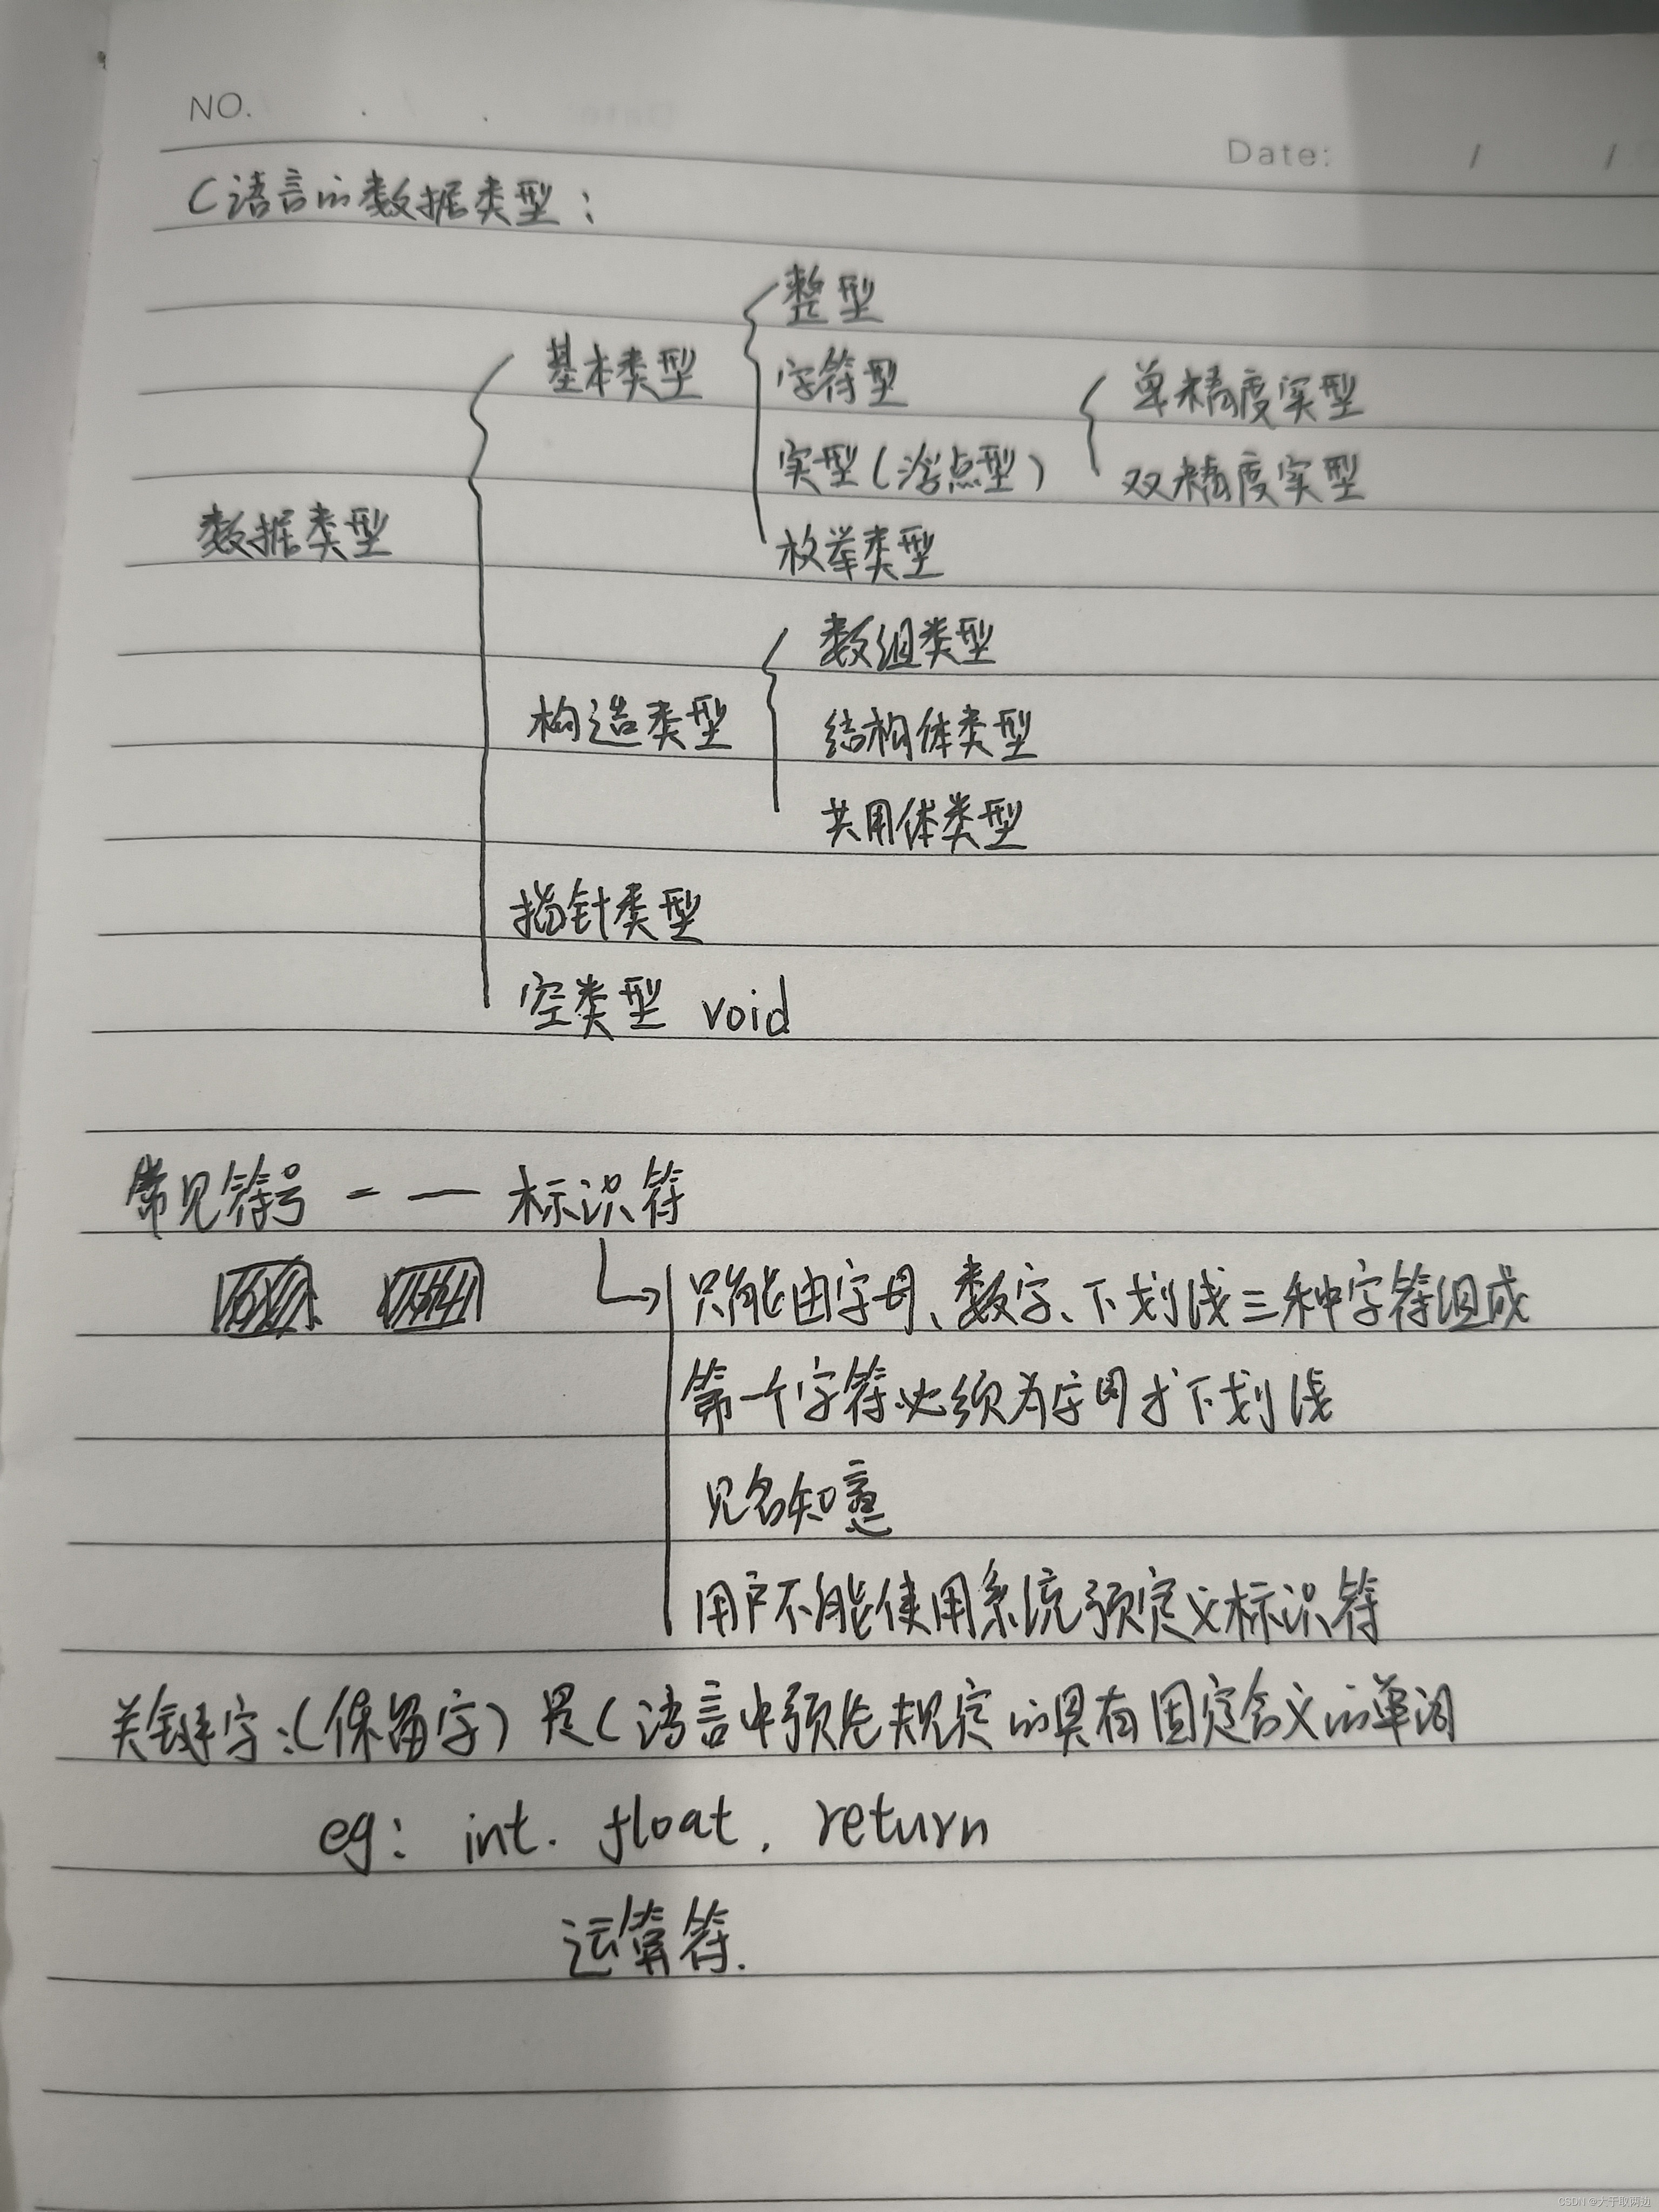 NO.
Date: / /
C语言的数据类型：
整型
基本类型
字符型
单精度实型
实型（浮点型）
双精度实型
数据类型
枚举类型
数组类型
构造类型
结构体类型
共用体类型
指针类型
空类型 void
常见符号 - — 标识符
只能由字母、数字、下划线三种字符组成
第一个字符必须为字母或下划线
见名知意
用户不能使用系统预定义标识符
关键字：（保留字）是C语言中预先规定的具有固定含义的单词
eg: int. float, return
运算符.
CSDN @大于取两边